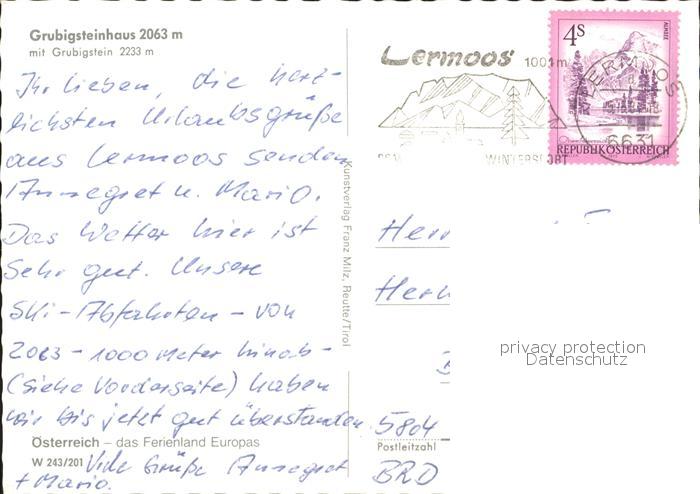 Grubigsteinhaus 2063 m
mit Grubigstein 2233 m
Ihr Lieben, die herz-
lichsten Urlaubsgrüße
aus Lermoos senden
Annegret u. Mario.
Das Wetter hier ist
sehr gut. Unsere
Ski-Abfahrten - von
2063 - 1000 Meter hinab -
(siehe Vorderseite) haben
wir bis jetzt gut überstanden.
Österreich – das Ferienland Europas
W 243/201 Viele Grüße Annegret
+ Mario.
Kunstverlag Franz Milz, Reutte/Tirol
Lermoos
1001m
WINTERSPORT
4S
ALMSEE
LERMOOS
6631
REPUBLIK ÖSTERREICH
Herr
Herm
privacy protection
Datenschutz
5804
Postleitzahl
BRD